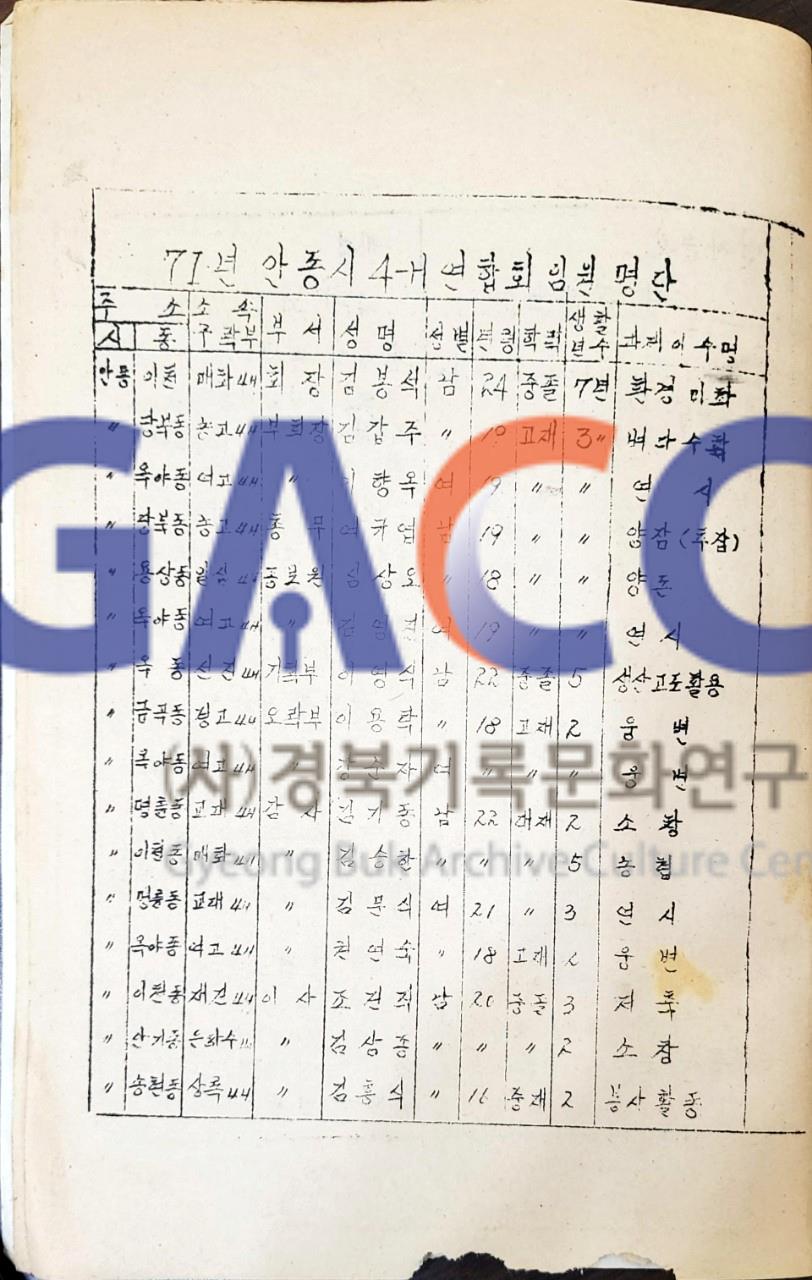 71년 안동시 4-H 연합회 임원 명단
주 소 소 속 부 서 성 명 성별 년령 학력 생활 년수 과제 이수명
시 동 구락부
안동 이천 매화4H 회 장 김봉식 남 24 중졸 7년 환경미화
〃 당북동 농고4H 부회장 김갑주 〃 19 고재 3〃 벼 다수확
〃 옥야동 여고4H 〃 이향옥 여 19 〃 〃 연 시
〃 당북동 농고4H 총 무 남 19 〃 〃 양잠(추잠)
〃 용상동 4H 상오 〃 18 〃 〃 양 돈
〃 옥야동 여고4H 〃 김 여 19 〃 〃 연 시
〃 옥 동 4H 기획부 이영식 남 22 중졸 5 생산고도활용
〃 금곡동 경고4H 오락부 이용탁 〃 18 고재 2 웅 변
〃 옥야동 여고4H 〃 강순자 여 〃 〃 〃 웅 변
〃 명륜동 교대4H 감 사 김기동 남 22 대재 2 소 창
〃 이천동 매화4H 〃 김승한 〃 〃 〃 5 농 협
〃 명륜동 교대4H 〃 김문식 여 21 〃 3 연 시
〃 옥야동 여고4H 〃 천연숙 〃 18 고재 2 웅 변
〃 이천동 재건4H 이 사 조건직 남 20 중졸 3 저 축
〃 안기동 은하수4H 〃 김상종 〃 〃 〃 2 소 창
〃 송현동 상록4H 〃 김홍식 〃 16 중재 2 봉사활동
GACC
(사)경북기록문화연구
Gyeong Buk Archive Culture Cen